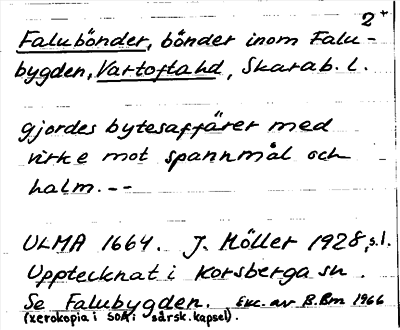 2+
Falubönder, bönder inom Falu-
bygden, Vartoftahd, Skarab. l.
gjordes bytesaffärer med
virke mot spannmål och
halm. --
ULMA 1664. J. Höller 1928, s.1.
Upptecknat i Korsberga sn.
Se Falubygden. Exc. av B.Bm 1966
(xerokopia i SOA: särsk. kapsel).